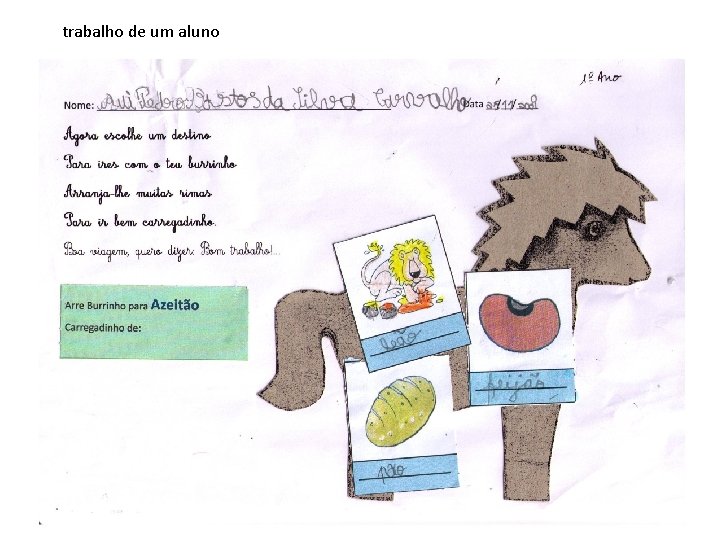 trabalho de um aluno
1º Ano
Nome: Rui Pedro Bastos da Silva Carvalho Data
Agora escolhe um destino
Para ires com o teu burrinho
Arranja-lhe muitas rimas
Para ir bem carregadinho.
Boa viagem, quero dizer: Bom trabalho!...
Arre Burrinho para Azeitão
Carregadinho de:
leão
feijão
pão